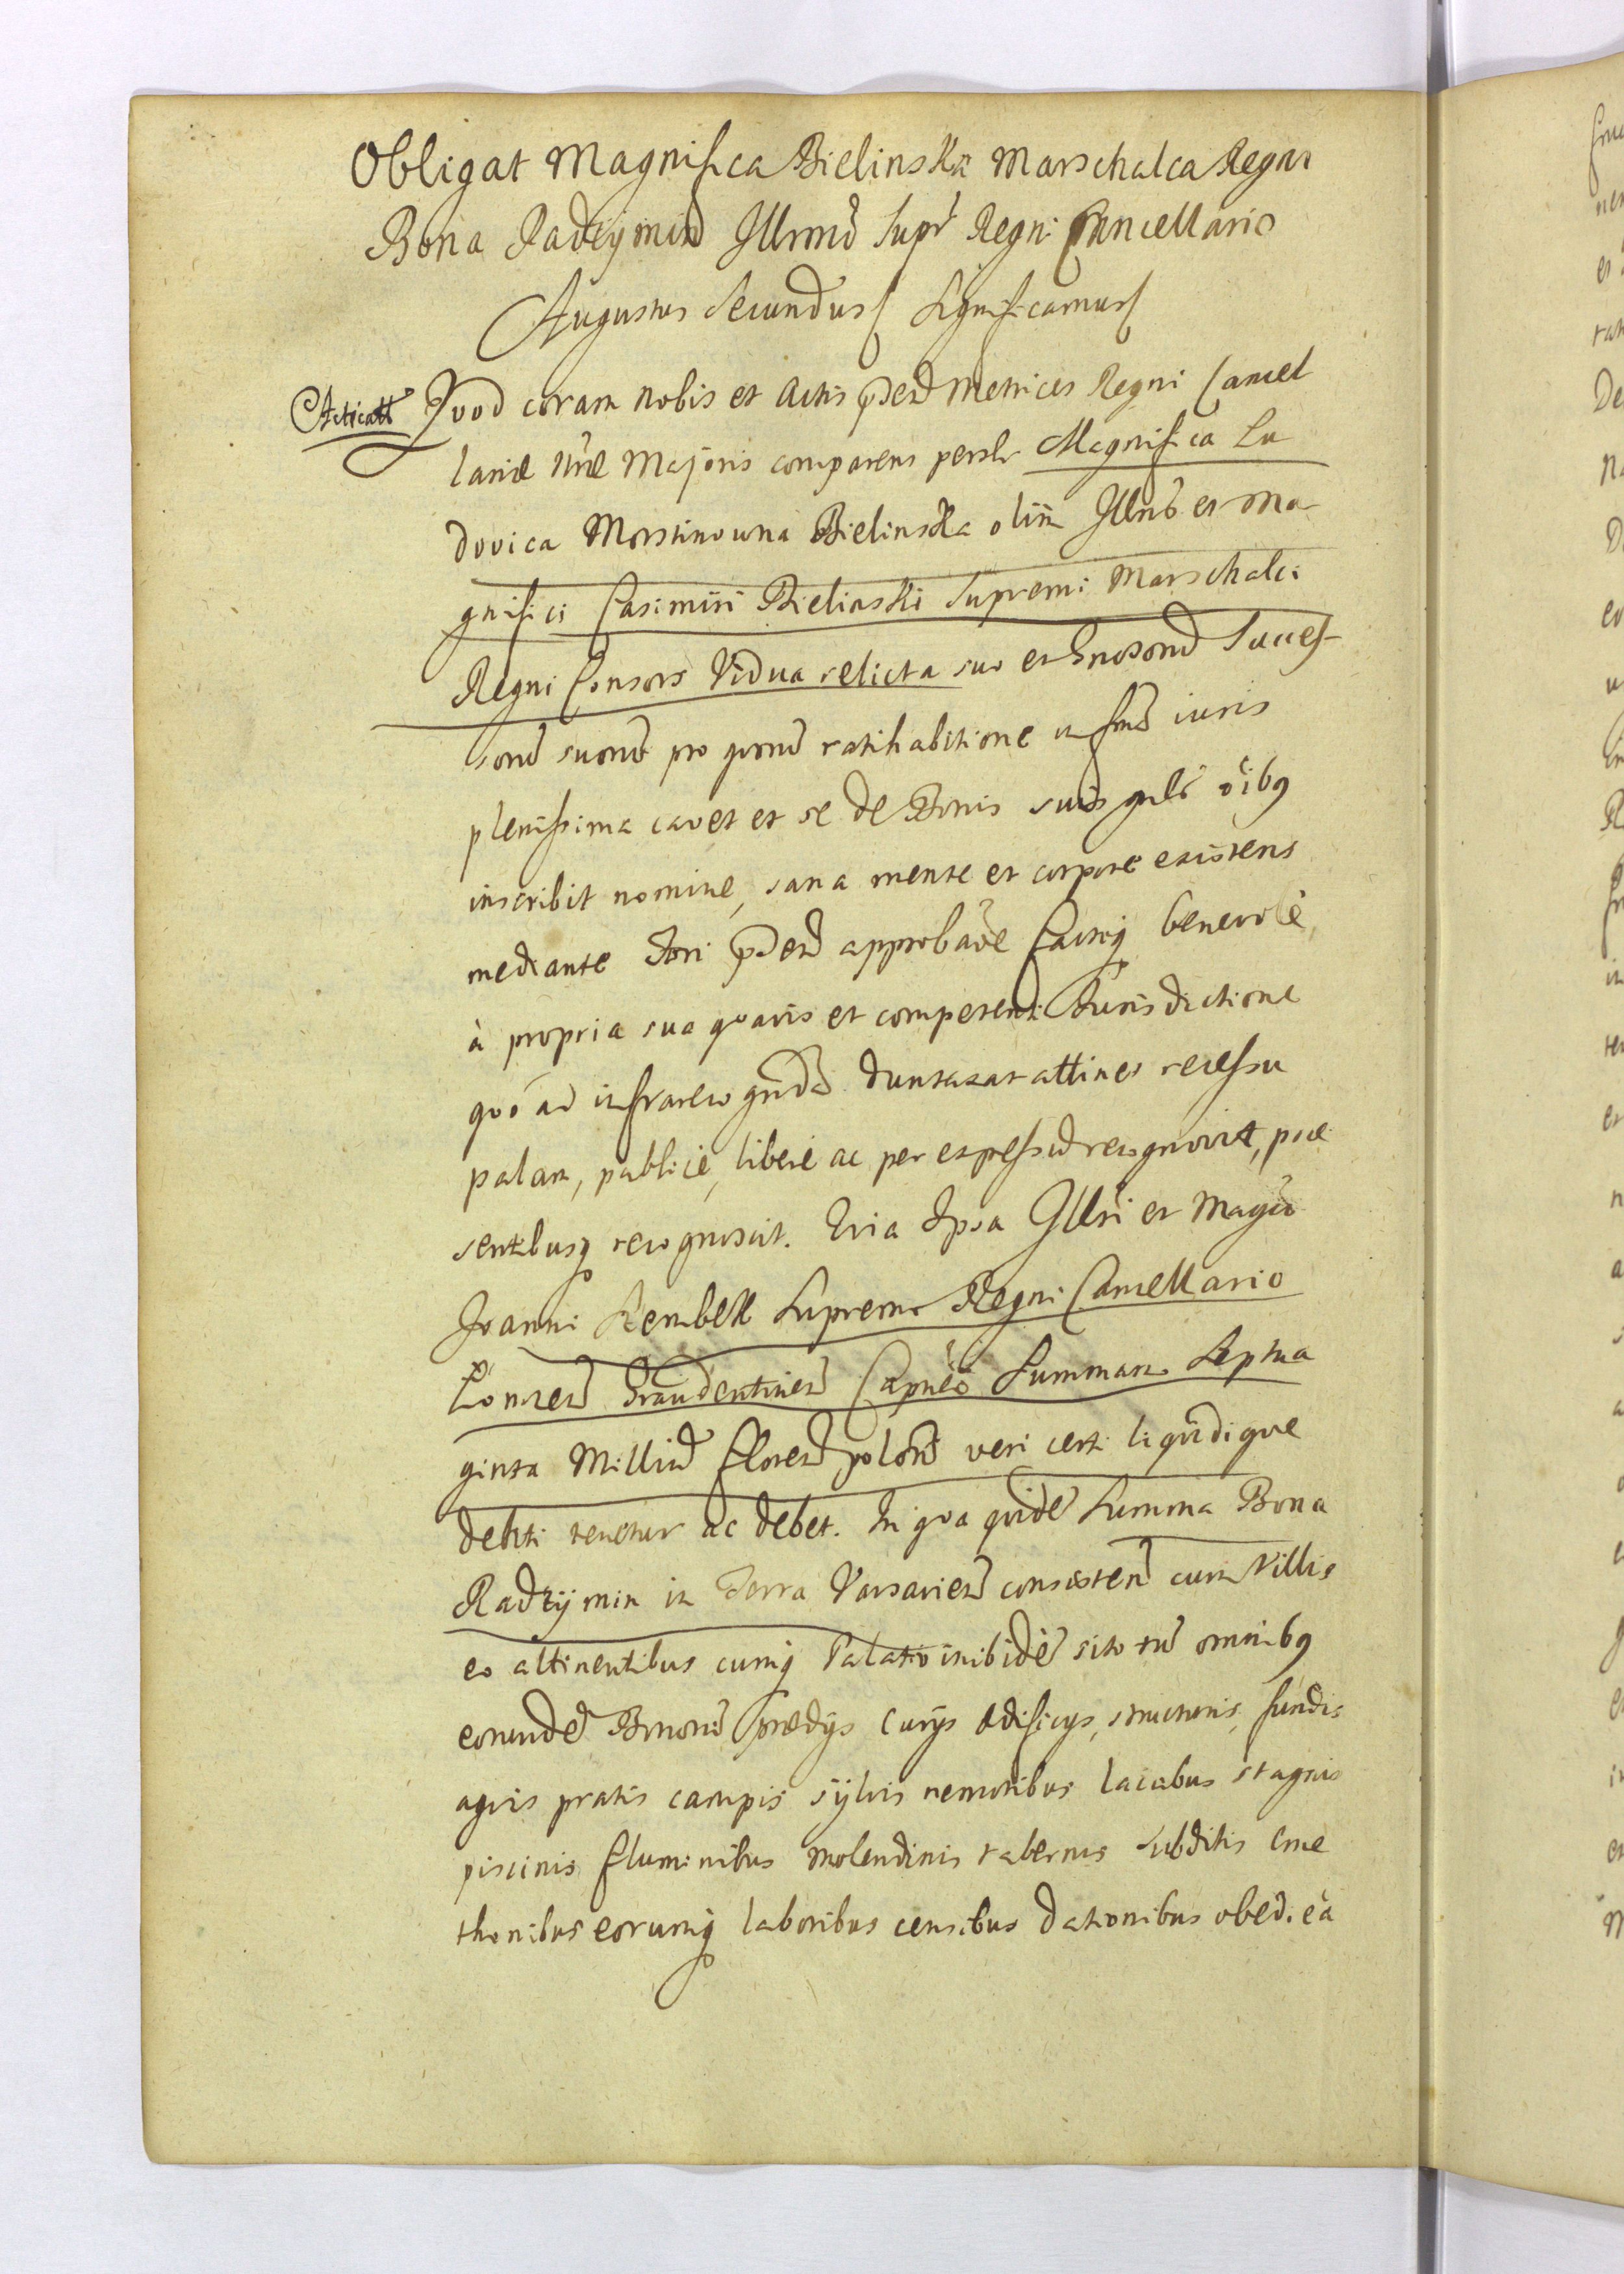 Obligat Magnifica Bielinska Marschalca Regni
Bona Radzymin Illrmo Supr Regni Cancellario
Augustus Secundus Significamus
Acticatt Quod coram nobis et Actis pñtib Metrices Regni Cancel
lariæ Nræ Majoris comparens persle Magnifica Lu
dovica Morstinowna Bielinska olim Illris et Ma-
gnifici Casimiri Bielinski Supremi Marschalci
Regni Consors Vidua relicta suo et Succes-
sorũ suorũ pro quorũ ratihabitione in formâ iuris
plenissima cavet et se de Bonis suis gnlr õibꝫ
inscribit nomine, sana mente et corpore existens
mediante Fori approbãõe benevolè
à propria sua quavis et competenti Jurisdictione
quò ad infrarecognda duntaxat attinet recessu
palam, publicè, liberè ac per expressũ recognovit, præ
sentibusq recognoscit. Quia Ipsa Illri et Magco
Joanni Szembek Supremo Regni Cancellario
Graudentinen Capneo Summam Septua
ginta Milliũ Floren polon veri certi liquidique
debiti tenetur ac debet. In qua quidẽ Summa Bona
Radzÿmin in Terra Varsavien consisten cum Villis
eo attinentibus cumq Palatio inibidẽ sito tũ omnibꝫ
eorundẽ Bonorũ prædÿs Curÿs ædificÿs, structuris, fundis
agris pratis campis sÿlvis nemoribus lacubus stagnis
piscinis fluminibus molendinis tabernis subditis Cme
thonibus eorumq laboribus censibus dationibus obediẽ